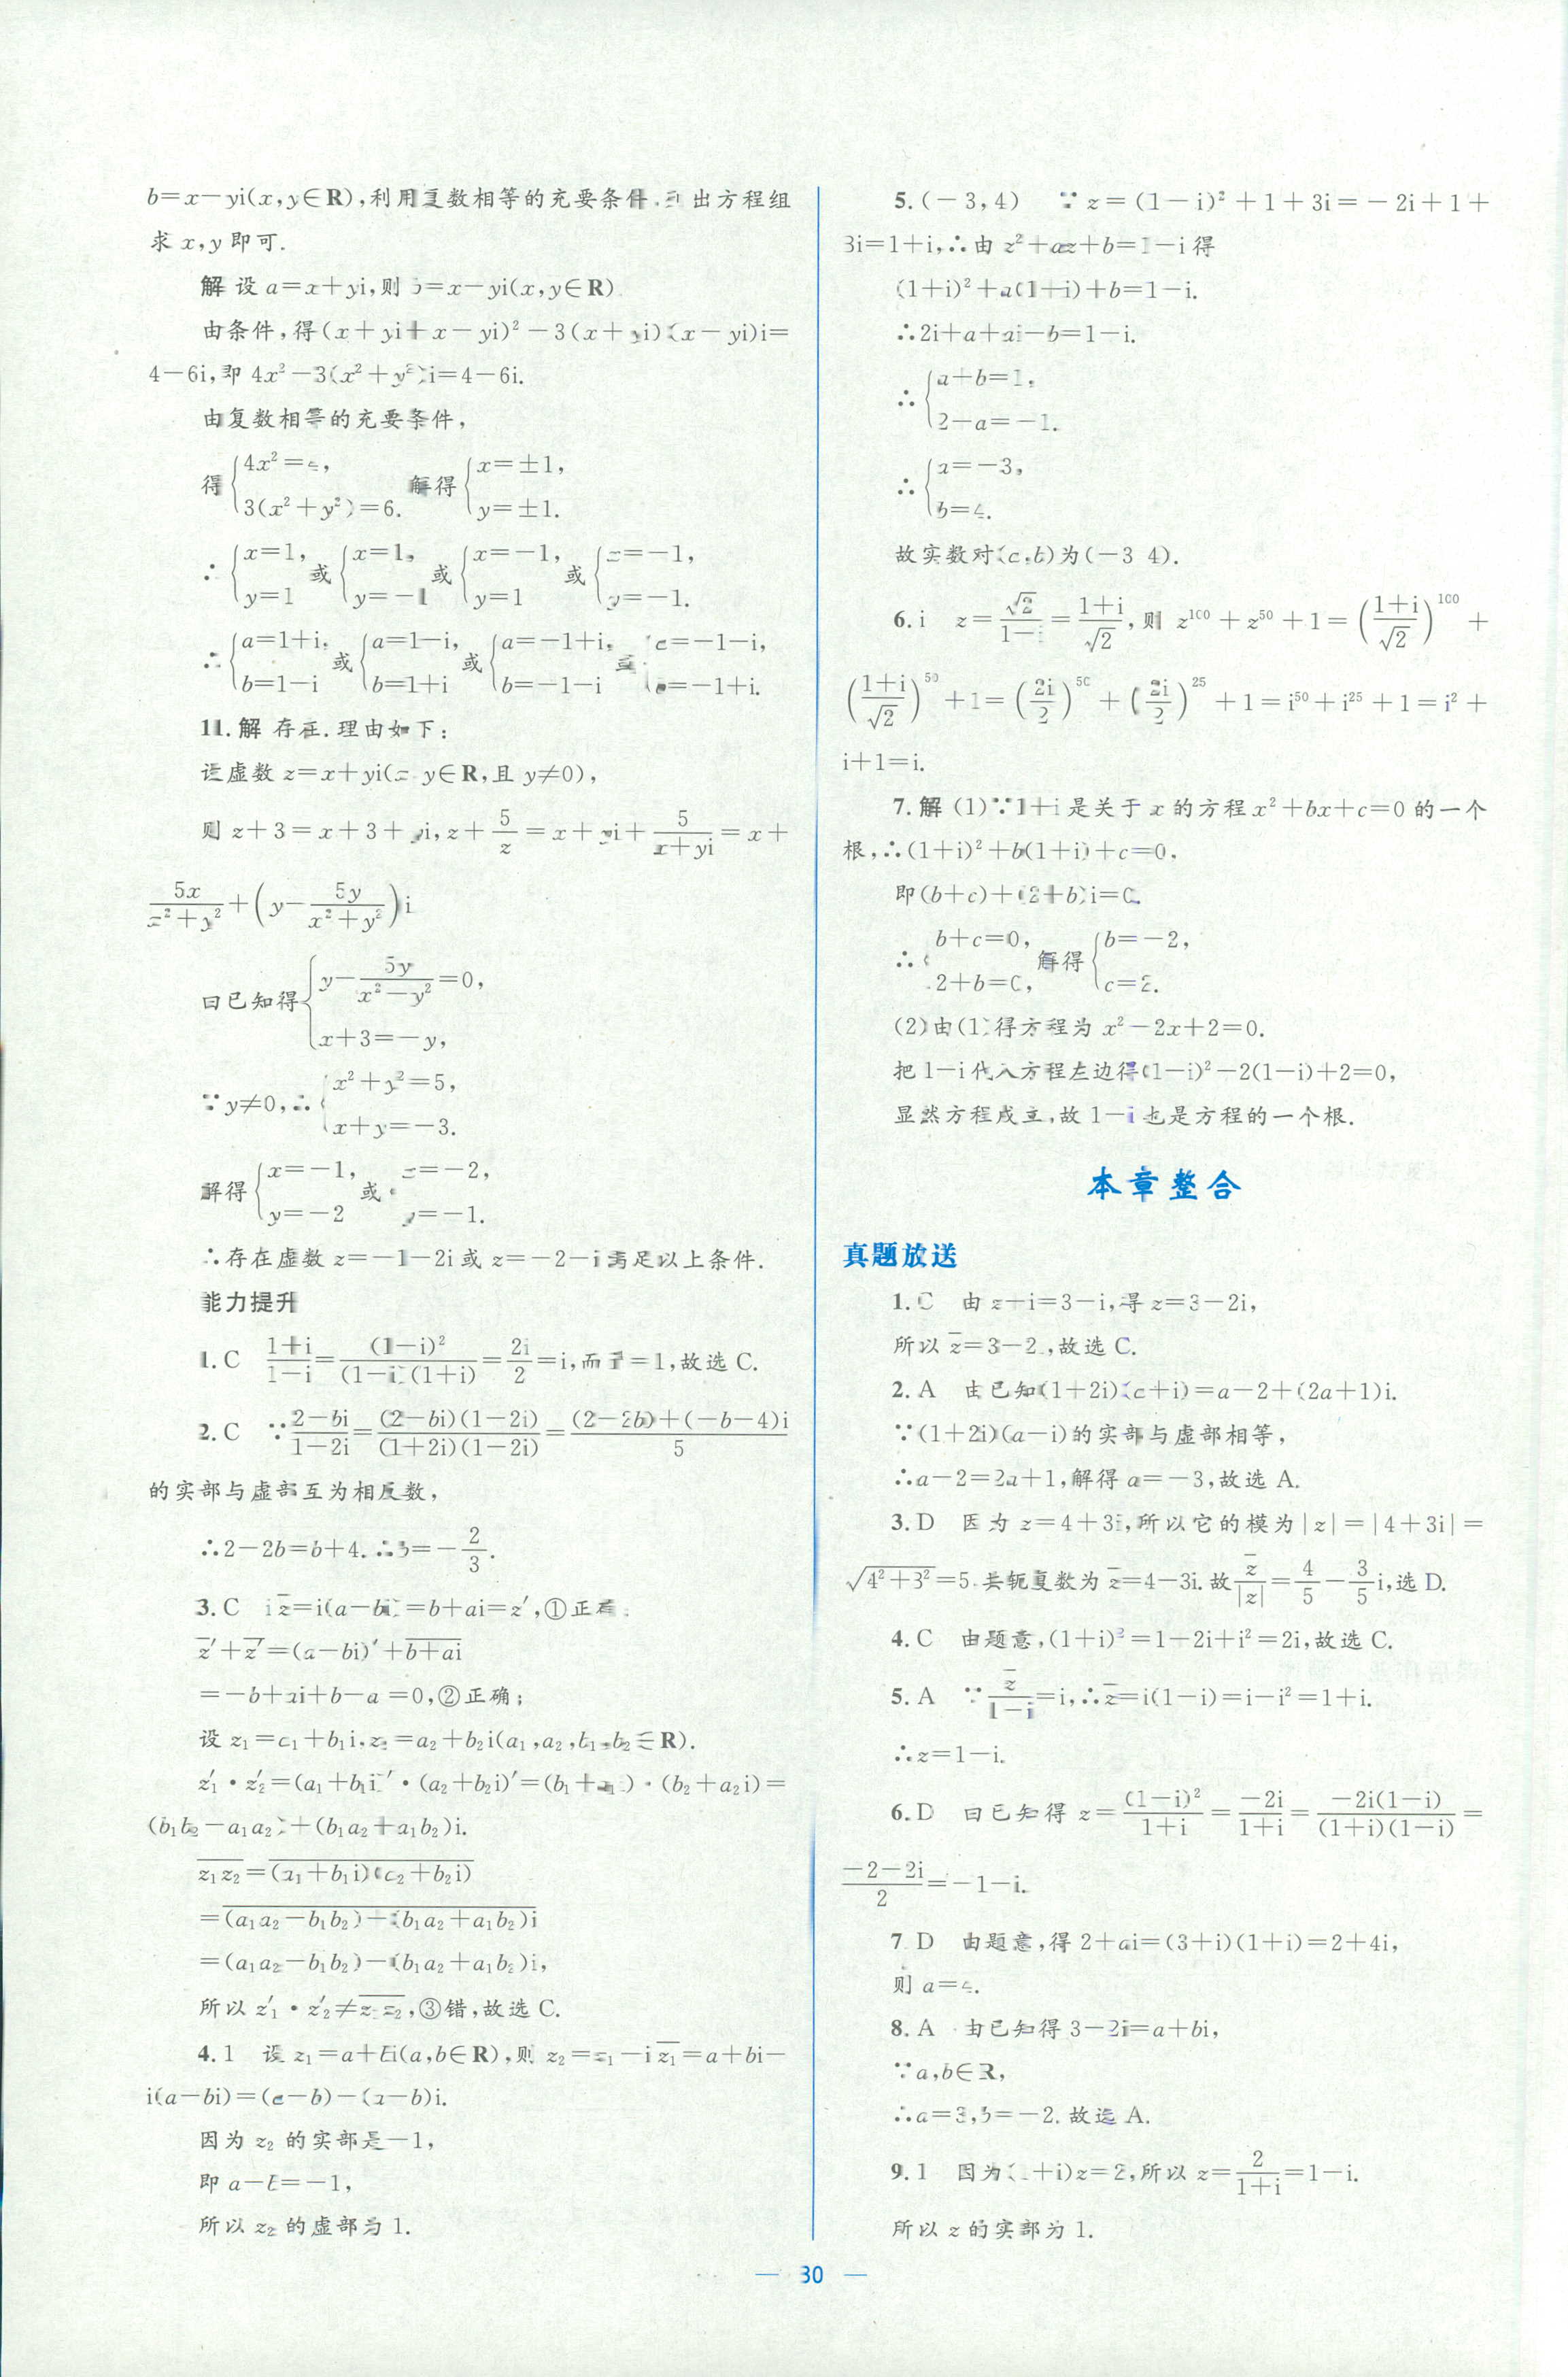 b=x-yi(x,y∈R),利用复数相等的充要条件,列出方程组
求 x,y 即可.
解 设 a=x+yi,则 b=x-yi(x,y∈R)
由条件,得(x+yi+x-yi)²-3(x+yi)(x-yi)i=
4-6i,即 4x²-3(x²+y²)i=4-6i.
由复数相等的充要条件,
得{4x²=4, 3(x²+y²)=6. 解得{x=±1, y=±1.
∴{x=1, y=1 或{x=1, y=-1 或{x=-1, y=1 或{x=-1, y=-1.
∴{a=1+i, b=1-i 或{a=1-i, b=1+i 或{a=-1+i, b=-1-i 或{a=-1-i, b=-1+i.
11.解 存在.理由如下:
设虚数 z=x+yi(x y∈R,且 y≠0),
则 z+3=x+3+yi,z+5/z=x+yi+5/(x+yi)=x+
5x/(x²+y²)+(y-5y/(x²+y²))i
由已知得{y-5y/(x²-y²)=0, x+3=-y,
∵y≠0,∴{x²+y²=5, x+y=-3.
解得{x=-1, y=-2 或 x=-2, y=-1.
∴存在虚数 z=-1-2i 或 z=-2-i 满足以上条件.
能力提升
1.C (1+i)/(1-i)=(1-i)²/((1-i)(1+i))=2i/2=i,而 =1,故选 C.
2.C ∵(2-bi)/(1-2i)=(2-bi)(1-2i)/((1+2i)(1-2i))=((2-2b)+(-b-4)i)/5
的实部与虚部互为相反数,
∴2-2b=b+4.∴b=-2/3.
3.C i z̅=i(a-bi)=b+ai=z′,①正确;
z̅′+z̅′=(a-bi)′+b+ai
=-b+ai+b-a =0,②正确;
设 z₁=a₁+b₁i,z₂=a₂+b₂i(a₁,a₂,b₁,b₂∈R).
z₁′·z₂′=(a₁+b₁i)′·(a₂+b₂i)′=(b₁+a₁i)·(b₂+a₂i)=
(b₁b₂-a₁a₂)+(b₁a₂+a₁b₂)i.
z₁z₂=(a₁+b₁i)(a₂+b₂i)
=(a₁a₂-b₁b₂)-(b₁a₂+a₁b₂)i
=(a₁a₂-b₁b₂)-(b₁a₂+a₁b₂)i,
所以 z₁′·z₂′≠z₁z₂,③错,故选 C.
4.1 设 z₁=a+bi(a,b∈R),则 z₂=z₁-i z̅₁=a+bi-
i(a-bi)=(a-b)-(a-b)i.
因为 z₂ 的实部是-1,
即 a-b=-1,
所以 z₂ 的虚部为 1.
5.(-3,4) ∵z=(1-i)²+1+3i=-2i+1+
3i=1+i,∴由 z²+az+b=1-i 得
(1+i)²+a(1+i)+b=1-i.
∴2i+a+ai-b=1-i.
∴{a+b=1, 2-a=-1.
∴{a=-3, b=4.
故实数对(a,b)为(-3 4).
6.i z=√2/(1-i)=(1+i)/√2,则 z¹⁰⁰+z⁵⁰+1=((1+i)/√2)¹⁰⁰+
((1+i)/√2)⁵⁰+1=(2i/2)⁵⁰+(2i/2)²⁵+1=i⁵⁰+i²⁵+1=i²+
i+1=i.
7.解 (1)∵1+i 是关于 x 的方程 x²+bx+c=0 的一个
根,∴(1+i)²+b(1+i)+c=0,
即(b+c)+(2+b)i=0.
∴{b+c=0, 2+b=0, 解得{b=-2, c=2.
(2)由(1)得方程为 x²-2x+2=0.
把 1-i 代入方程左边得(1-i)²-2(1-i)+2=0,
显然方程成立,故 1-i 也是方程的一个根.
本章整合
真题放送
1.C 由 z-i=3-i,得 z=3-2i,
所以 z̅=3-2,故选 C.
2.A 由已知(1+2i)(a+i)=a-2+(2a+1)i.
∵(1+2i)(a-i)的实部与虚部相等,
∴a-2=2a+1,解得 a=-3,故选 A.
3.D 因为 z=4+3i,所以它的模为|z|=|4+3i|=
√(4²+3²)=5.共轭复数为 z̅=4-3i.故 z̅/|z|=4/5-3/5i,选 D.
4.C 由题意,(1+i)²=1-2i+i²=2i,故选 C.
5.A ∵z̅/(1-i)=i,∴z̅=i(1-i)=i-i²=1+i.
∴z=1-i.
6.D 由已知得 z=(1-i)²/(1+i)=-2i/(1+i)=-2i(1-i)/((1+i)(1-i))=
(-2-2i)/2=-1-i.
7 D 由题意,得 2+ai=(3+i)(1+i)=2+4i,
则 a=4.
8.A 由已知得 3-2i=a+bi,
∵a,b∈R,
∴a=3,b=-2.故选 A.
9.1 因为(1+i)z=2,所以 z=2/(1+i)=1-i.
所以 z 的实部为 1.
— 30 —